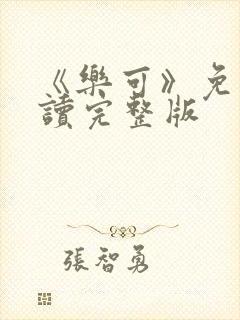 《樂可》免
讀完整版
張智勇